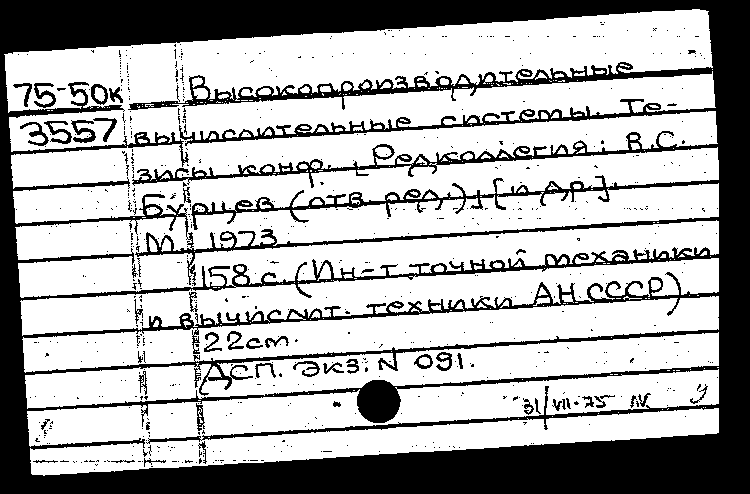 75-50к Высокопроизводительные
3557 вычислительные системы. Те-
зисы конф. [Редколлегия: В.С.
Бурцев (отв. ред.)] [и др.].
М., 1973.
158 с. (Ин-т точной механики
и вычислит. техники АН СССР).
22см.
ДСП. Экз. N 091.
31/VII-75